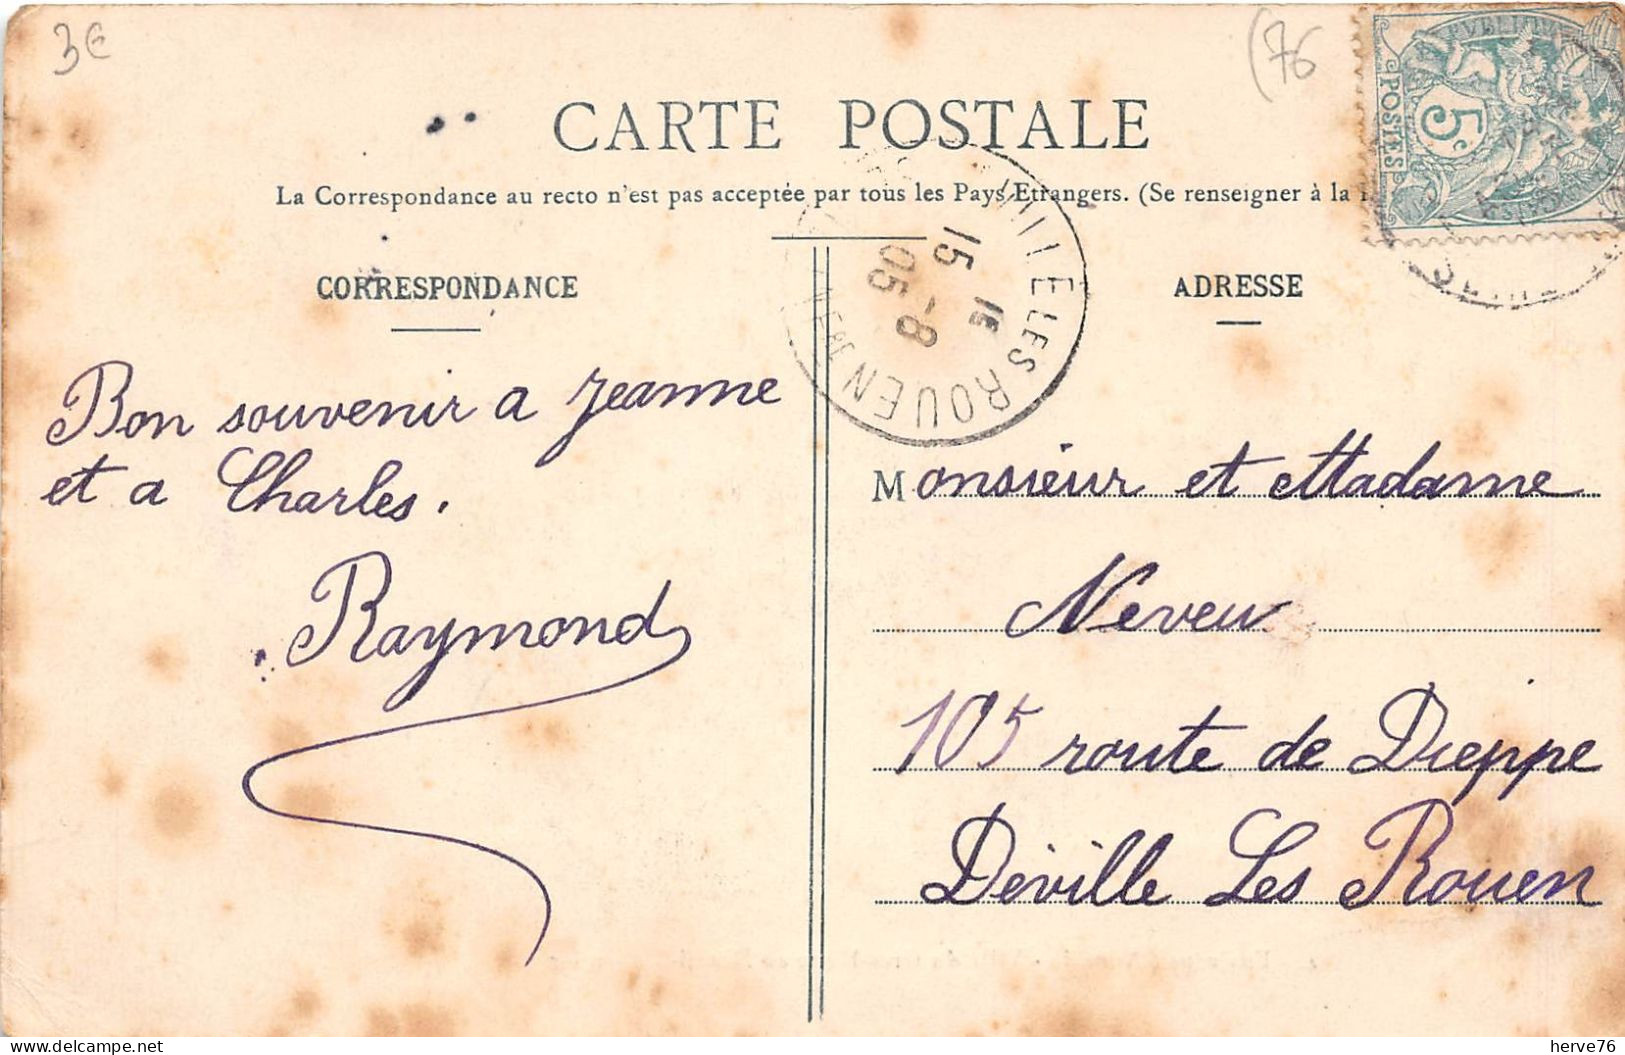 3€
(76
CARTE POSTALE
La Correspondance au recto n'est pas acceptée par tous les Pays Etrangers. (Se renseigner à la
CORRESPONDANCE
ADRESSE
POSTES
5c
VILLE LES ROUEN
15
15
-8
05
Bon souvenir a Jeanne
et a Charles.
Raymond
Monsieur et Madame
Neveu
105 route de Dieppe
Déville Les Rouen
delcampe.net
herve76